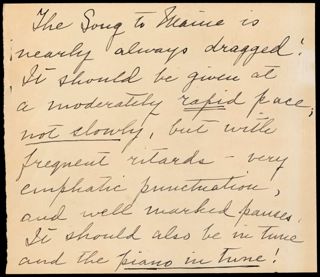 The Song to Maine is
nearly always dragged!
It should be given at
a moderately rapid pace,
not slowly, but with
frequent ritards - very
emphatic punctuation,
and well marked pauses.
It should also be in tune
and the piano in tune!